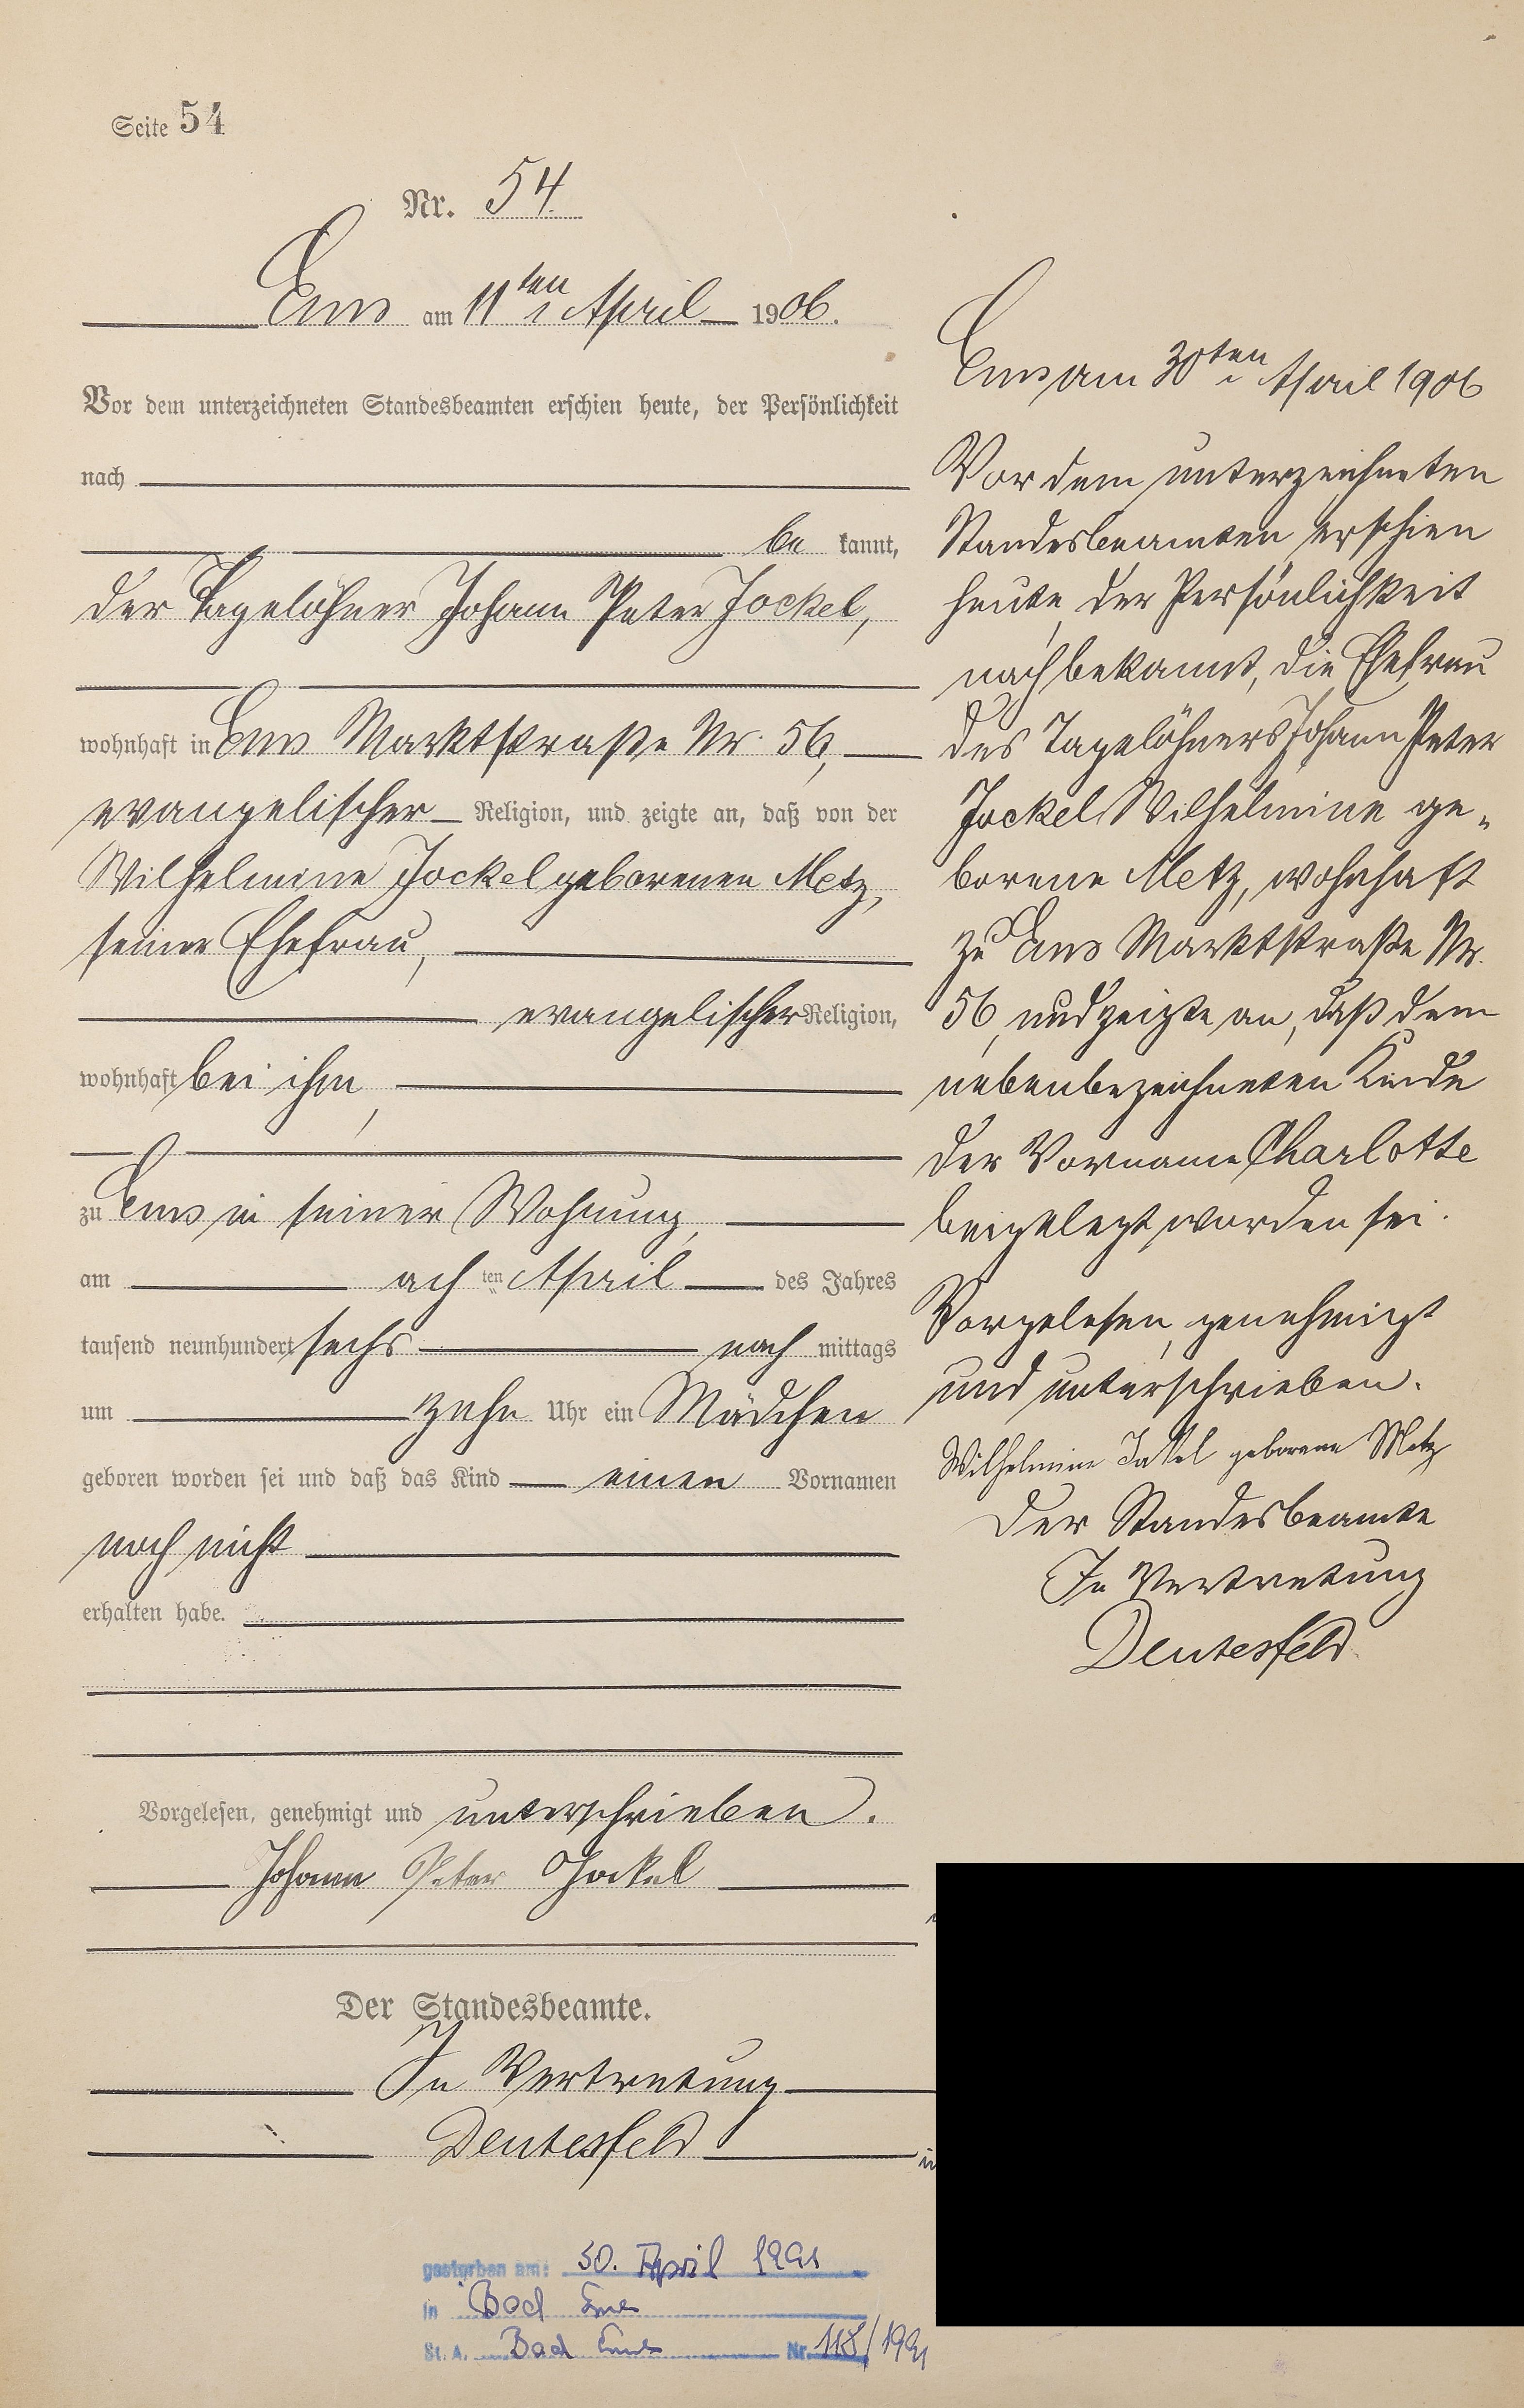 Seite 54
Nr. 54
Ems am 11ten April 1906.
Vor dem unterzeichneten Standesbeamten erschien heute, der Persönlichkeit
nach
be kannt,
der Tagelöhner Johann Peter Jockel,
wohnhaft in Ems Marktstraße Nr. 56,
evangelischer Religion, und zeigte an, daß von der
Wilhelmine Jockel geborenen Metz,
seiner Ehefrau,
evangelischer Religion,
wohnhaft bei ihm,
zu Ems in seiner Wohnung,
am ach ten April des Jahres
tausend neunhundert sechs nach mittags
um zehn Uhr ein Mädchen
geboren worden sei und daß das Kind einen Vornamen
noch nicht
erhalten habe.
Vorgelesen, genehmigt und unterschrieben.
Johann Peter Jockel
Der Standesbeamte.
In Vertretung
Deutesfeld
Ems am 30ten April 1906
Vor dem unterzeichneten
Standesbeamten erschien
heute, der Persönlichkeit
nach bekannt, die Ehefrau
des Tagelöhners Johann Peter
Jockel Wilhelmine ge-
borene Metz, wohnhaft
zu Ems Marktstraße Nr.
56, und zeigte an, daß dem
nebenbezeichneten Kinde
der Vorname Charlotte
beigelegt worden sei.
Vorgelesen, genehmigt
und unterschrieben.
Wilhelmine Jakel geborene Metz
Der Standesbeamte
In Vertretung
Deutesfeld
gestorben am: 30. April 1991
in Bad Ems
St. A. Bad Ems Nr. 118/1991